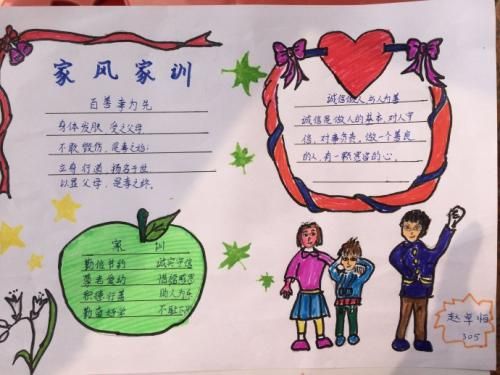 家风家训
百善孝为先
身体发肤,受之父母
不敢毁伤,是孝之始;
立身行道,扬名于世
以显父母,是孝之终。
诚信做人 与人为善
诚信是做人的基本,对人守
信,对事负责。做一个善良
的人,有一颗宽容的心。
家 训
勤俭节约 诚实守信
尊老爱幼 懂得感恩
积德行善 助人为乐
勤奋好学 不耻
305